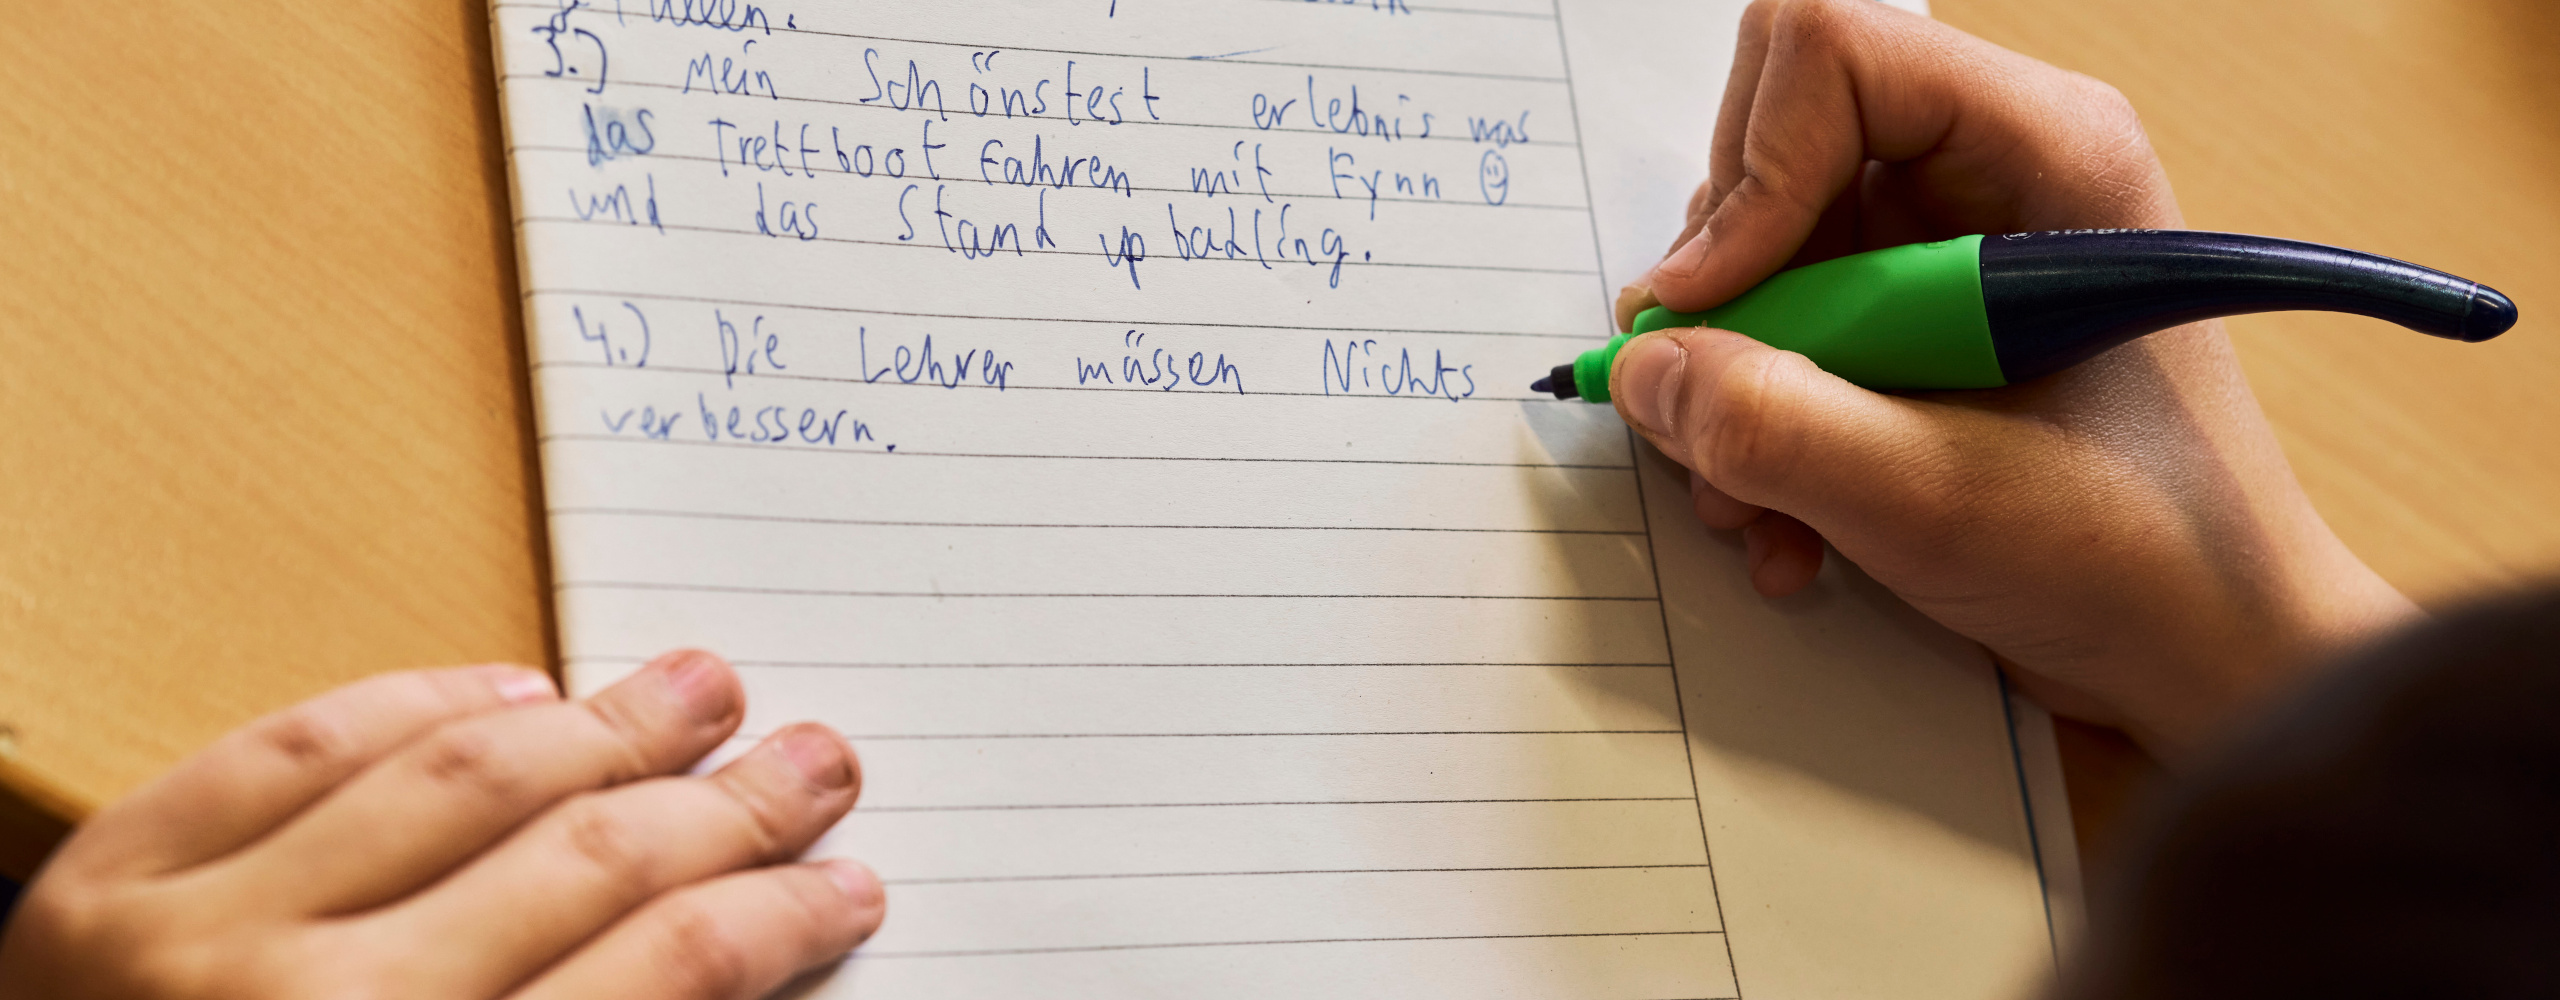 3.) Mein Schönstest erlebnis was
das Trettboot fahren mit Fynn ☺
und das Stand up badling.
4.) Die Lehrer müssen Nichts
verbessern.